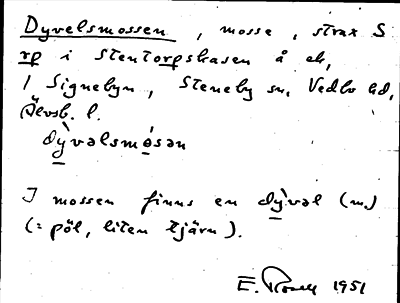 Dyvelsmossen, mosse, strax S
rp i Stentorpskasen å ek,
1 Signebyn, Steneby sn, Vedbo hd,
Älvsb. l.
dỳvəlsmósən
I mossen finns en dỳvəl (m.)
(= pöl, liten tjärn).
E. 1951